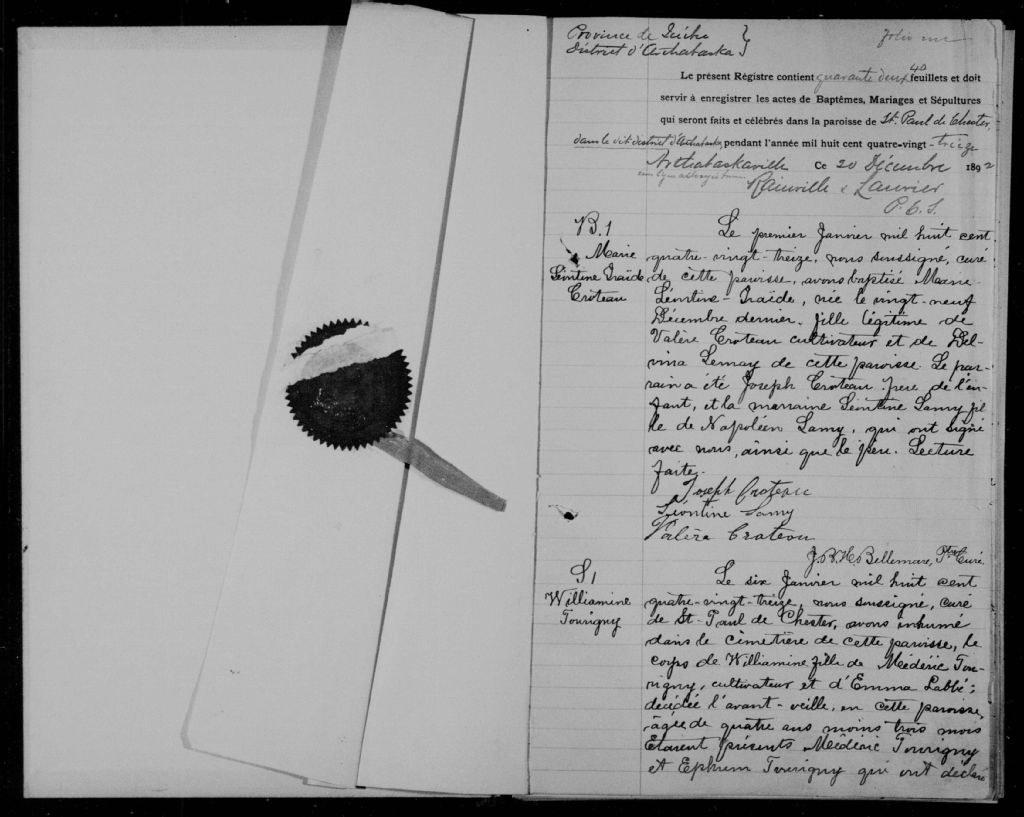 Province de
District d'Arthabaska }
folio
Le présent Régistre contient quarante deux 40 feuillets et doit
servir à enregistrer les actes de Baptêmes, Mariages et Sépultures
qui seront faits et célébrés dans la paroisse de St. Paul de Chester,
dans le dit district d'Arthabaska, pendant l'année mil huit cent quatre-vingt-treize
Arthabaskaville Ce 20 Décembre 1892
Rainville & Laurier
P. C. S.
B. 1
Marie
Léontine Iraïde
Croteau
Le premier Janvier mil huit cent
quatre-vingt-treize, nous soussigné, curé
de cette paroisse, avons baptisé Marie-
Léontine-Iraïde, née le vingt-neuf
Décembre dernier. fille légitime de
Valère Croteau cultivateur et de Del-
vina Lemay de cette paroisse. Le par-
rain a été Joseph Croteau. frere de l'en-
fant, et la marraine Léontine Lamy fil
le de Napoléon Lamy, qui ont signé
avec nous, ainsi que le père. Lecture
faite.
Joseph Croteau
Léontine Lamy
Valère Croteau
J. B. H. Bellemare, Ptre Curé.
S 1
Williamine
Tourigny
Le six Janvier mil huit cent
quatre-vingt-treize, nous soussigné, curé
de St-Paul de Chester, avons inhumé
dans le cimetière de cette paroisse, le
corps de Williamine fille de Médéric Tou-
rigny, cultivateur et d'Emma Labbé;
décédée l'avant-veille, en cette paroisse,
âgée de quatre ans moins trois mois
Etaient présents Médéric Tourigny
et Ephrem Tourigny qui ont déclaré